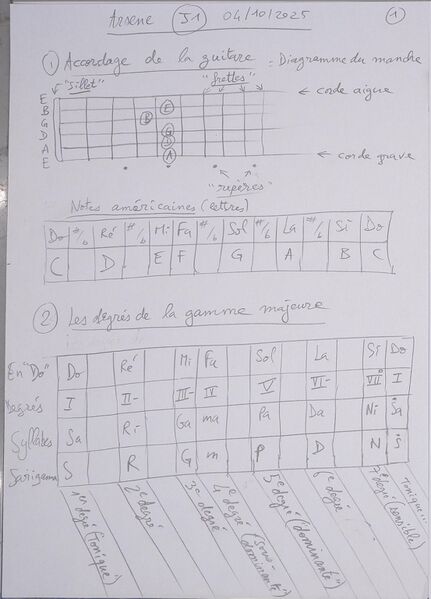 Arsene J1 04/10/2025 1
1 Accordage de la guitare = Diagramme du manche
"Sillet" "frettes"
E
B
G
D
A
E
E
B
G
D
A
← corde aigue
← corde grave
"repères"
Notes américaines (lettres)
Do #/b Ré #/b Mi Fa #/b Sol #/b La #/b Si Do
C D E F G A B C
2 Les degrés de la gamme majeure
En "Do" Do Ré Mi Fa Sol La Si Do
Degrés I II- III- IV V VI- VII° I
Syllabes Sa Ri Ga ma Pa Da Ni Ṡa
Sarigama S R G m P D N Ṡ
1er degré (Tonique)
2e degré
3e degré
4e degré (sous-dominante)
5e degré (dominante)
6e degré
7e degré (sensible)
Tonique...